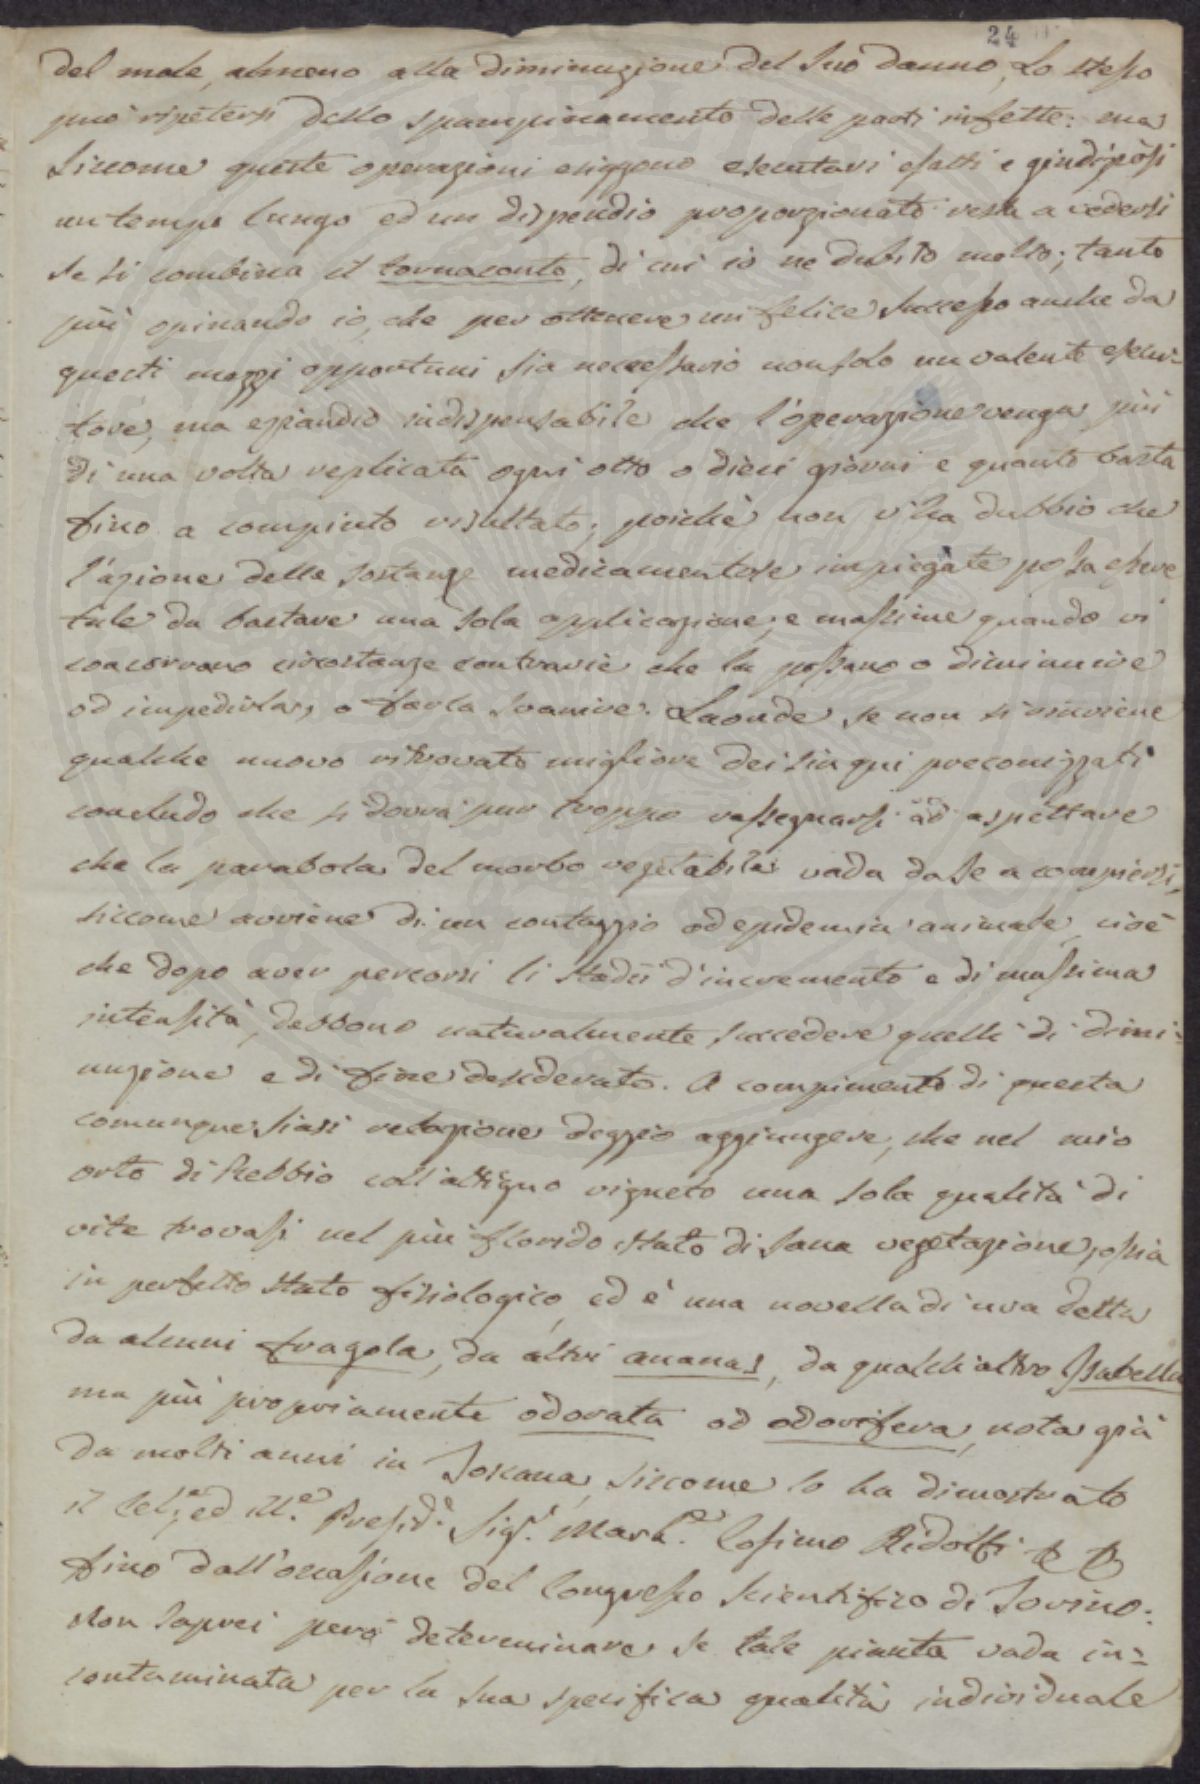 24
del male, almeno alla diminuzione del suo danno, Lo stesso
può ripetersi dello spampinamento delle parti infette: ma
siccome queste operazioni esiggono esecutori esatti e giudiziosi
un tempo lungo ed un dispendio proporzionato resta a vedersi
se si combina il tornaconto, di cui io ne dubito molto; tanto
più opinando io, che per ottenere un felice successo anche da
questi mezzi opportuni sia necessario non solo un valente esecu=
tore, ma eziandio indispensabile che l'operazione venga più
di una volta replicata ogni otto o dieci giorni e quanto basta
fino a compiuto risultato; poichè non v'ha dubbio che
l'azione delle sostanze medicamentose impiegate possa essere
tale da bastare una sola applicazione, e massime quando vi
concorrano circostanze contrarie che la possano o diminuire
od impedirla, o farla svanire. Laonde se non si rinviene
qualche nuovo ritrovato migliore dei sin qui preconizzati
concludo che si dovrà pur troppo rassegnarsi ad aspettare
che la parabola del morbo vegetabile vada da se a compiersi,
siccome avviene di un contaggio od epidemia animale, cioè
che dopo aver percorsi li stadii d'incremento e di massima
intensità, debbono naturalmente succedere quelli di dimi=
nuzione e di fine desiderato. A compimento di questa
comunque siasi relazione deggio aggiungere, che nel mio
orto di Rebbio coll'attiguo vigneto una sola qualità di
vite trovasi nel più florido stato di sana vegetazione, ossia
in perfetto stato fisiologico, ed è una novella di uva detta
da alcuni fragola, da altri ananas, da qualch'altro Isabella
ma più propriamente odorata od odorifera, nota già
da molti anni in Toscana, siccome lo ha dimostrato
il Cel.e ed Ill.e Presid.e Sig.r Marh.e Cosimo Ridolfi
fino dall'occasione del Congresso Scientifico di Torino:
Non saprei però determinare se tale pianta vada in=
contaminata per la sua specifica qualità individuale